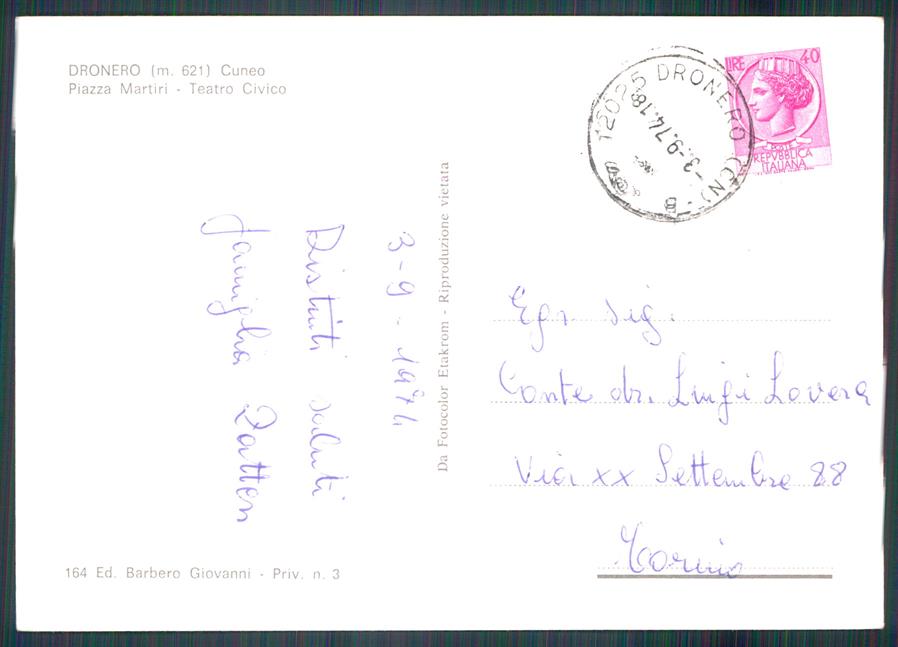 DRONERO (m. 621) Cuneo
Piazza Martiri - Teatro Civico
12025 DRONERO (CN) - B
-3.-9.74.18
LIRE 40
POSTE
REPVBBLICA
ITALIANA
3-9-1974
Distinti saluti
famiglia
Da Fotocolor Etakrom - Riproduzione vietata
Egr. Sig.
Conte dr. Luigi Lovera
Via XX Settembre 88
Torino
164 Ed. Barbero Giovanni - Priv. n. 3